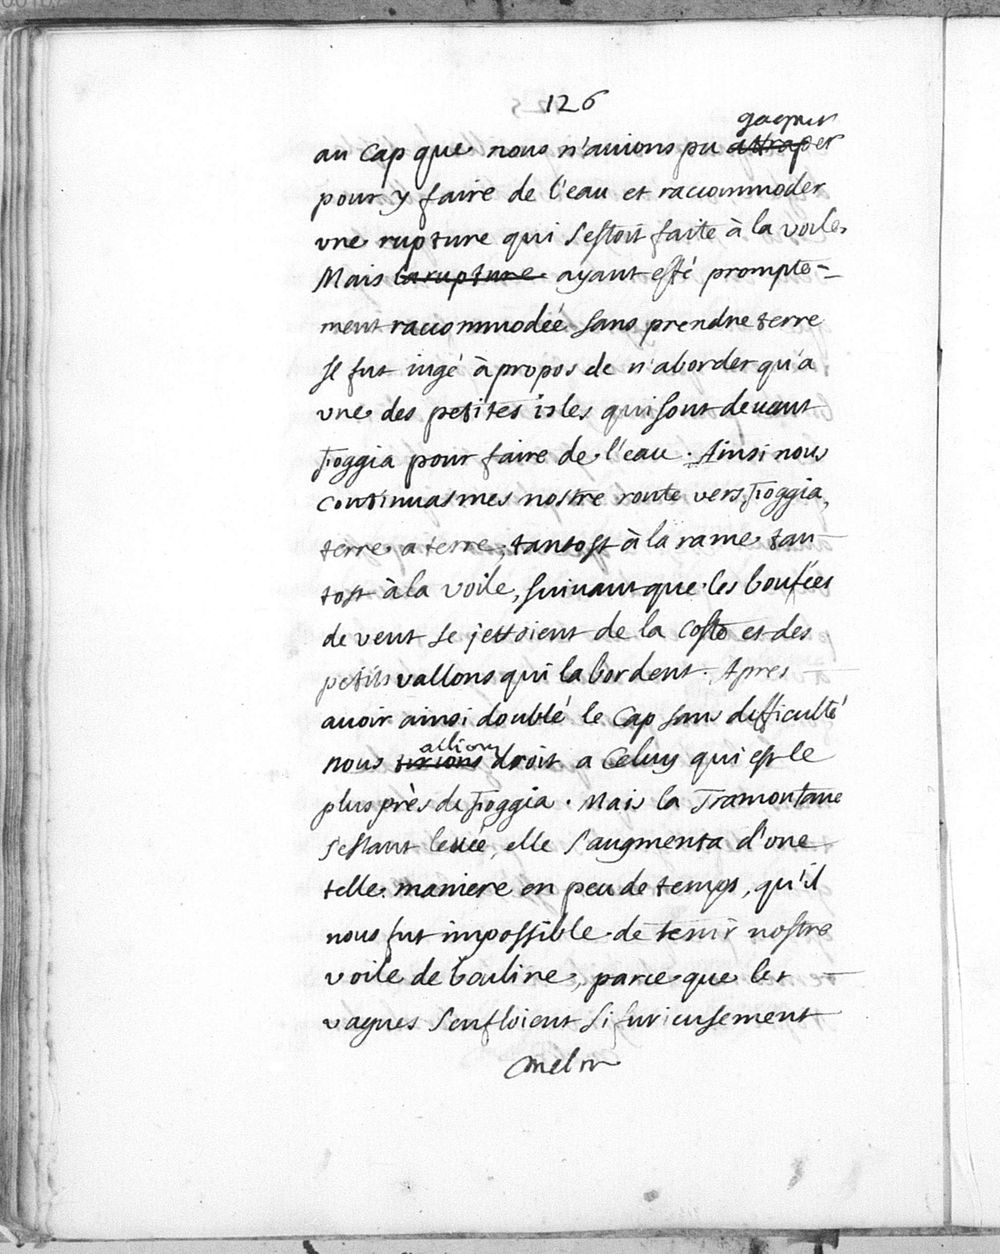 126
gagner
au Cap que nous n'auions pu attraper
pour y faire de l'eau et raccommoder
vne rupture qui s'estoit faite à la voile.
Mais la rupture ayant esté prompte-
ment raccommodée sans prendre terre
Il fut iugé à propos de n'aborder qu'a
vne des petites isles qui sont deuant
foggia pour faire de l'eau. Ainsi nous
continuasmes nostre route vers foggia,
terre a terre, tantost à la rame tan
tost à la voile, suiuant que les boufées
de vent se jettoient de la coste et des
petits vallons qui la bordent. Apres
auoir ainsi doublé le Cap sans difficulté
allions
nous tirions droit a Celuy qui est le
plus près de foggia. Mais la Tramontane
s'estant leuée, elle s'augmenta d'vne
telle maniere en peu de temps, qu'il
nous fut impossible de tenir nostre
voile de bouline, parce que les
vagues s'enfloient si furieusement